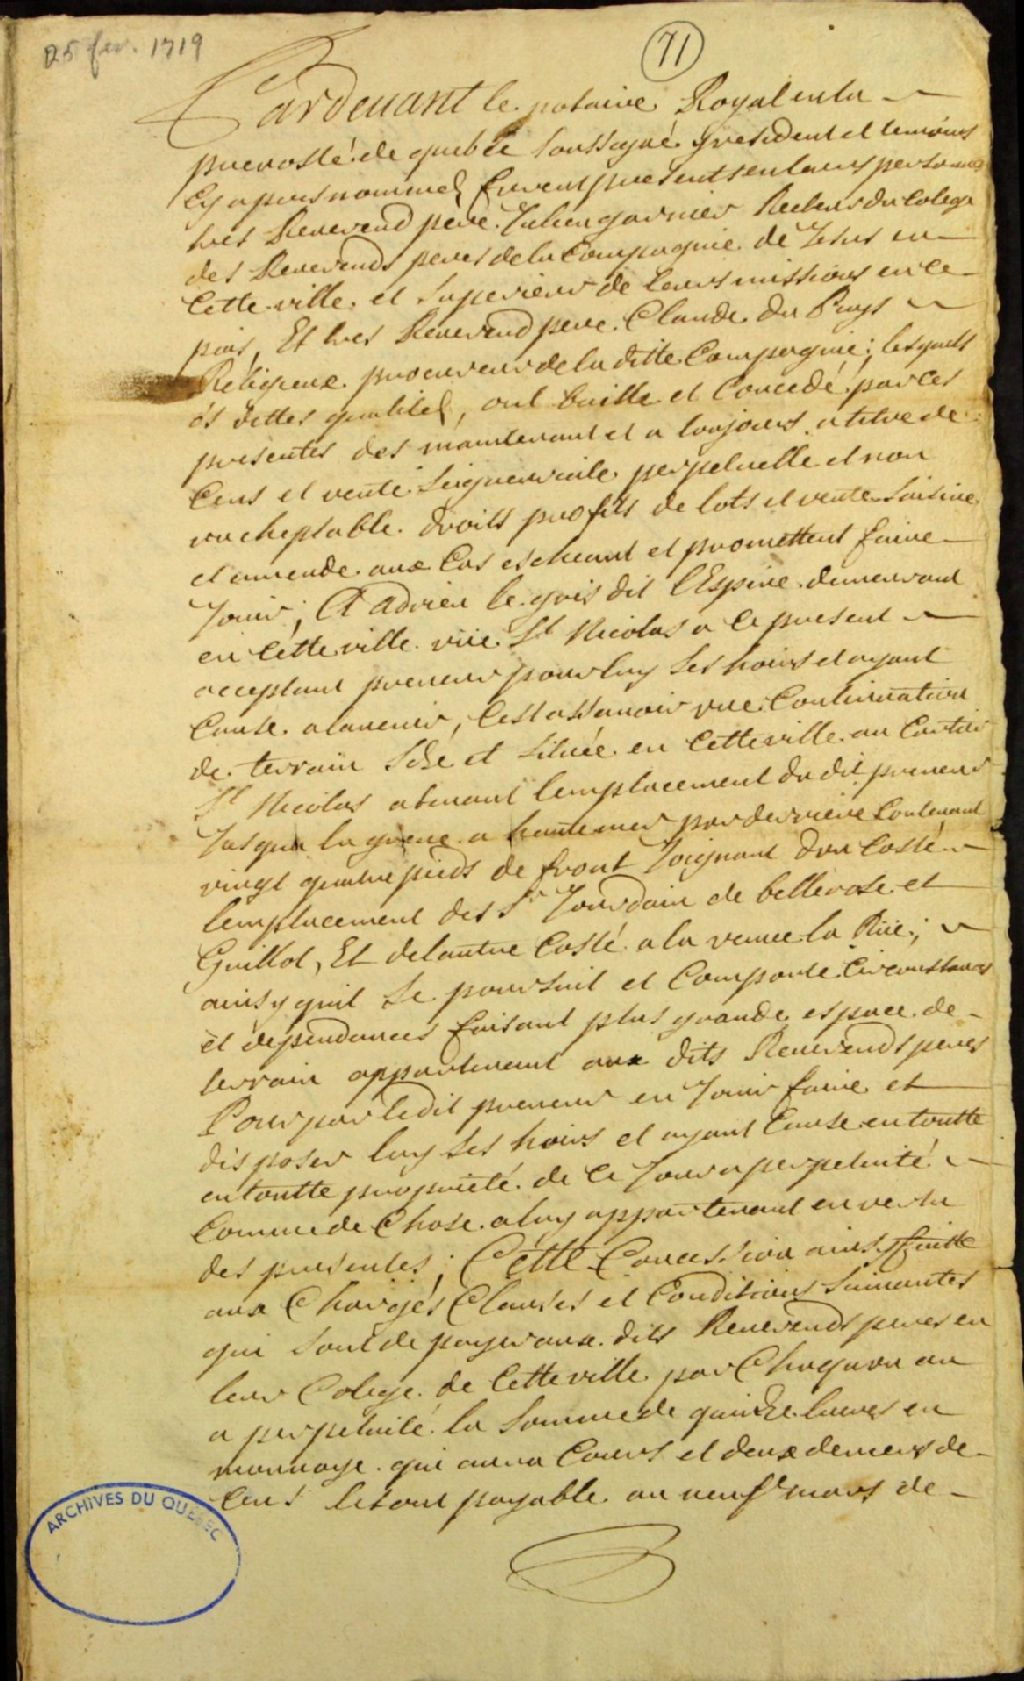 25 fev. 1719
71
Pardevant le notaire Royal en la
prevosté de quebec soussigné y resident et temoins
Cy apres nommez furent presents en leurs personnes
tres Reverend pere Julien garnier Recteur du Colege
des Reverends peres de la Compagnie de Jesus en
Cette ville et superieur de leurs missions en ce
pais, Et tres Reverend pere Claude Du Puys
Religieux procureur de la ditte Compagnie; lesquels
és dittes qualitez, ont baillé et Concedé par ces
presentes des maintenant et a toujours a titre de
Cens et rente seigneurialle perpetuelle et non
racheptable droits profits de lots et vente saisine
et amende aux Cas escheant et promettent faire
Jouir; A adrien le gris dit l'Espine demeurant
en Cette ville rüe St Nicolas a ce present
acceptant preneur pour luy ses hoirs et ayant
Cause a lavenir, Cest assavoir une Continuation
de terrain size et située en Cette ville au Cartier
St Nicolas atenant lemplacement du dit preneur
Jusqua la greve a haute mer par derriere Contenant
vingt quatre pieds de front Joignant dun Costé
lemplacement des Sr Jourdain de bellerose et
Guillot, Et de lautre Costé a la venue la Rüe;
ainsy quil se poursuit et Comporte Circonstances
et dependances faisant plus grande espace de
terrain appartenant aux dits Reverends peres
Pour par ledit preneur en Jouir faire et
disposer luy ses hoirs et ayant Cause en toutte
en toutte proprieté de ce Jour a perpetuité
Comme de Chose a luy appartenant en vertu
des presentes; Cette Concession ainsy faitte
aux Charges Clauses et Conditions suivantes
qui sont de payer aux dits Reverends peres en
leur Colege de Cette ville par Chaquun an
a perpetuité la somme de quinze livres en
monnoye qui aura Cours et deux deniers de
Cens le tout payable au neufe mars de
ARCHIVES DU QUÉBEC